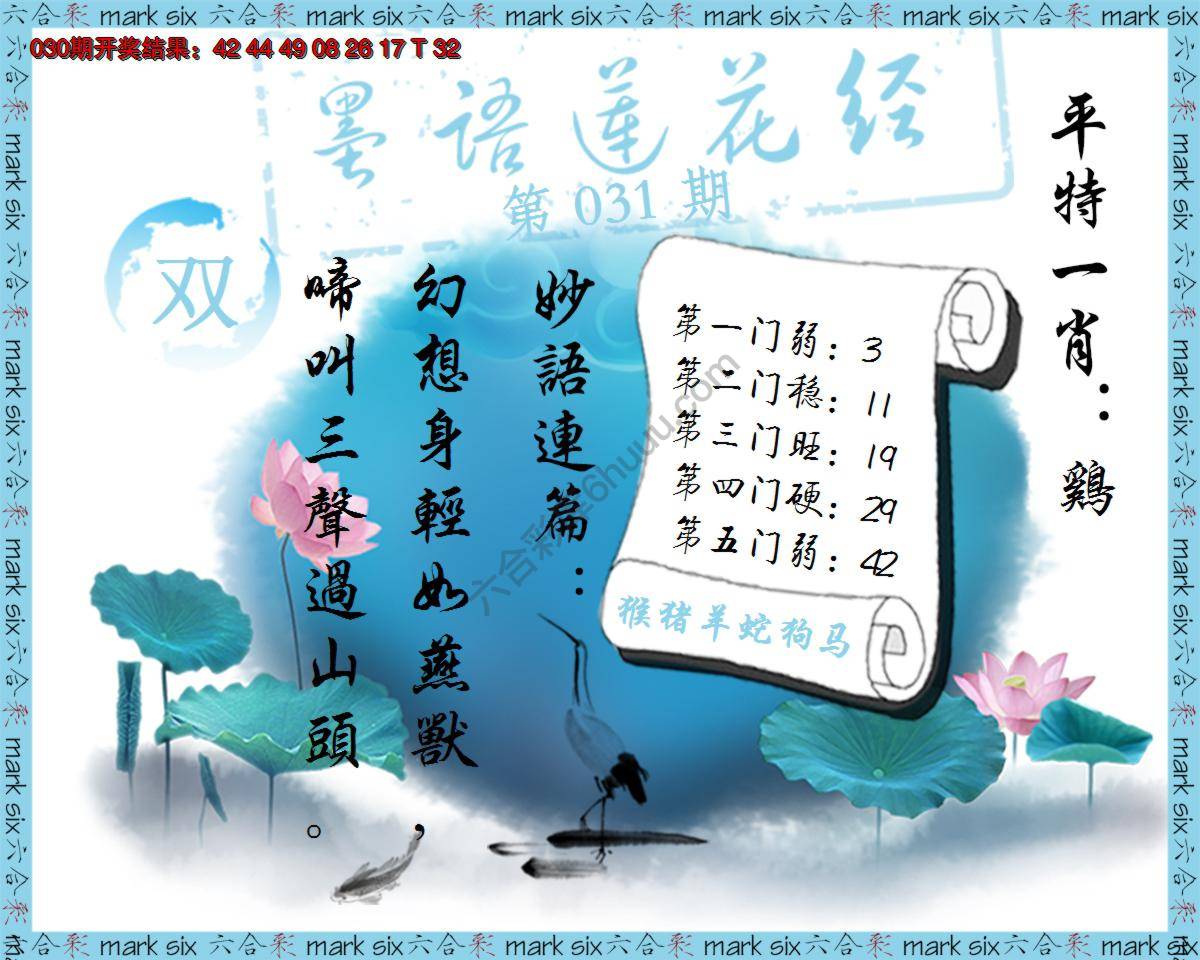 六合彩 mark six 六合彩 mark six 六合彩 mark six 六合彩 mark six 六合彩 mark six 六合彩 mark six
030期开奖结果：42 44 49 08 26 17 T 32
墨語莲花经
第 031 期
双
平特一肖：鷄
妙語連篇：
幻想身輕如燕獸，
啼叫三聲過山頭。
第一门弱：3
第二门稳：11
第三门旺：19
第四门硬：29
第五门弱：42
猴猪羊蛇狗马
六合彩 mark six 六合彩 mark six 六合彩 mark six 六合彩 mark six 六合彩 mark six 六合彩 mark six